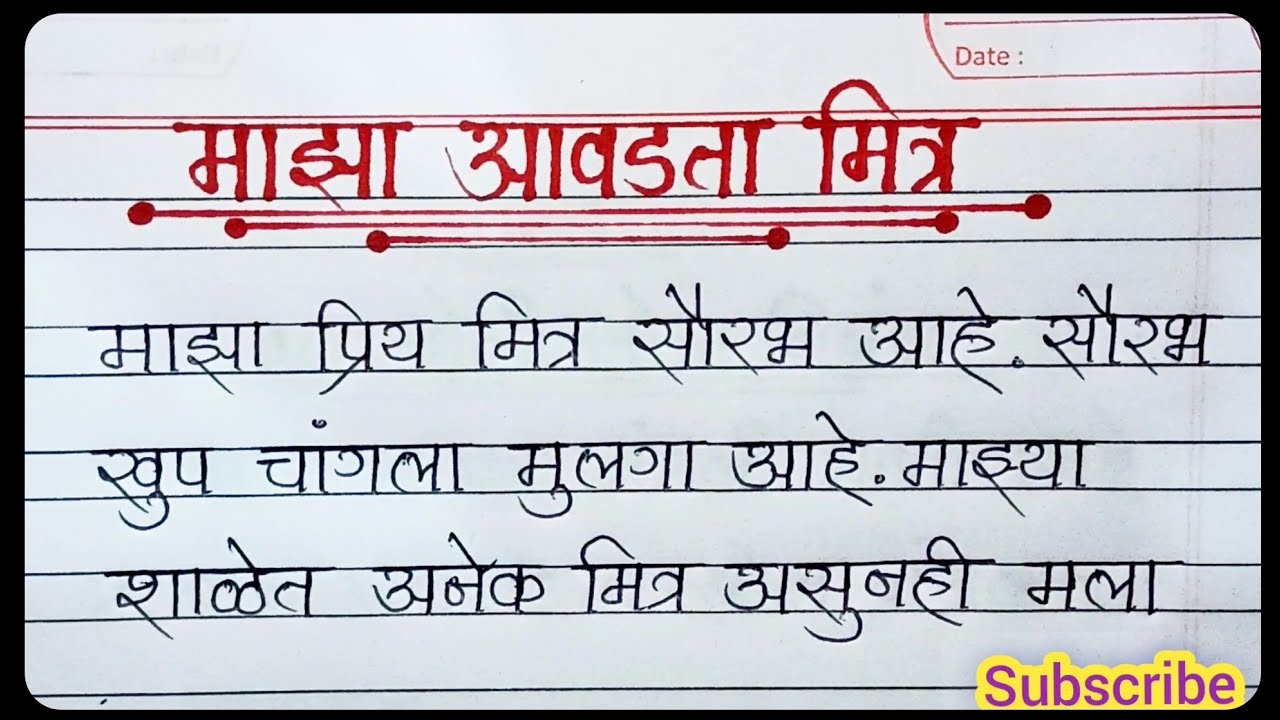 Date :
माझा आवडता मित्र
माझा प्रिय मित्र सौरभ आहे. सौरभ
खुप चांगला मुलगा आहे. माझ्या
शाळेत अनेक मित्र असुनही मला
Subscribe